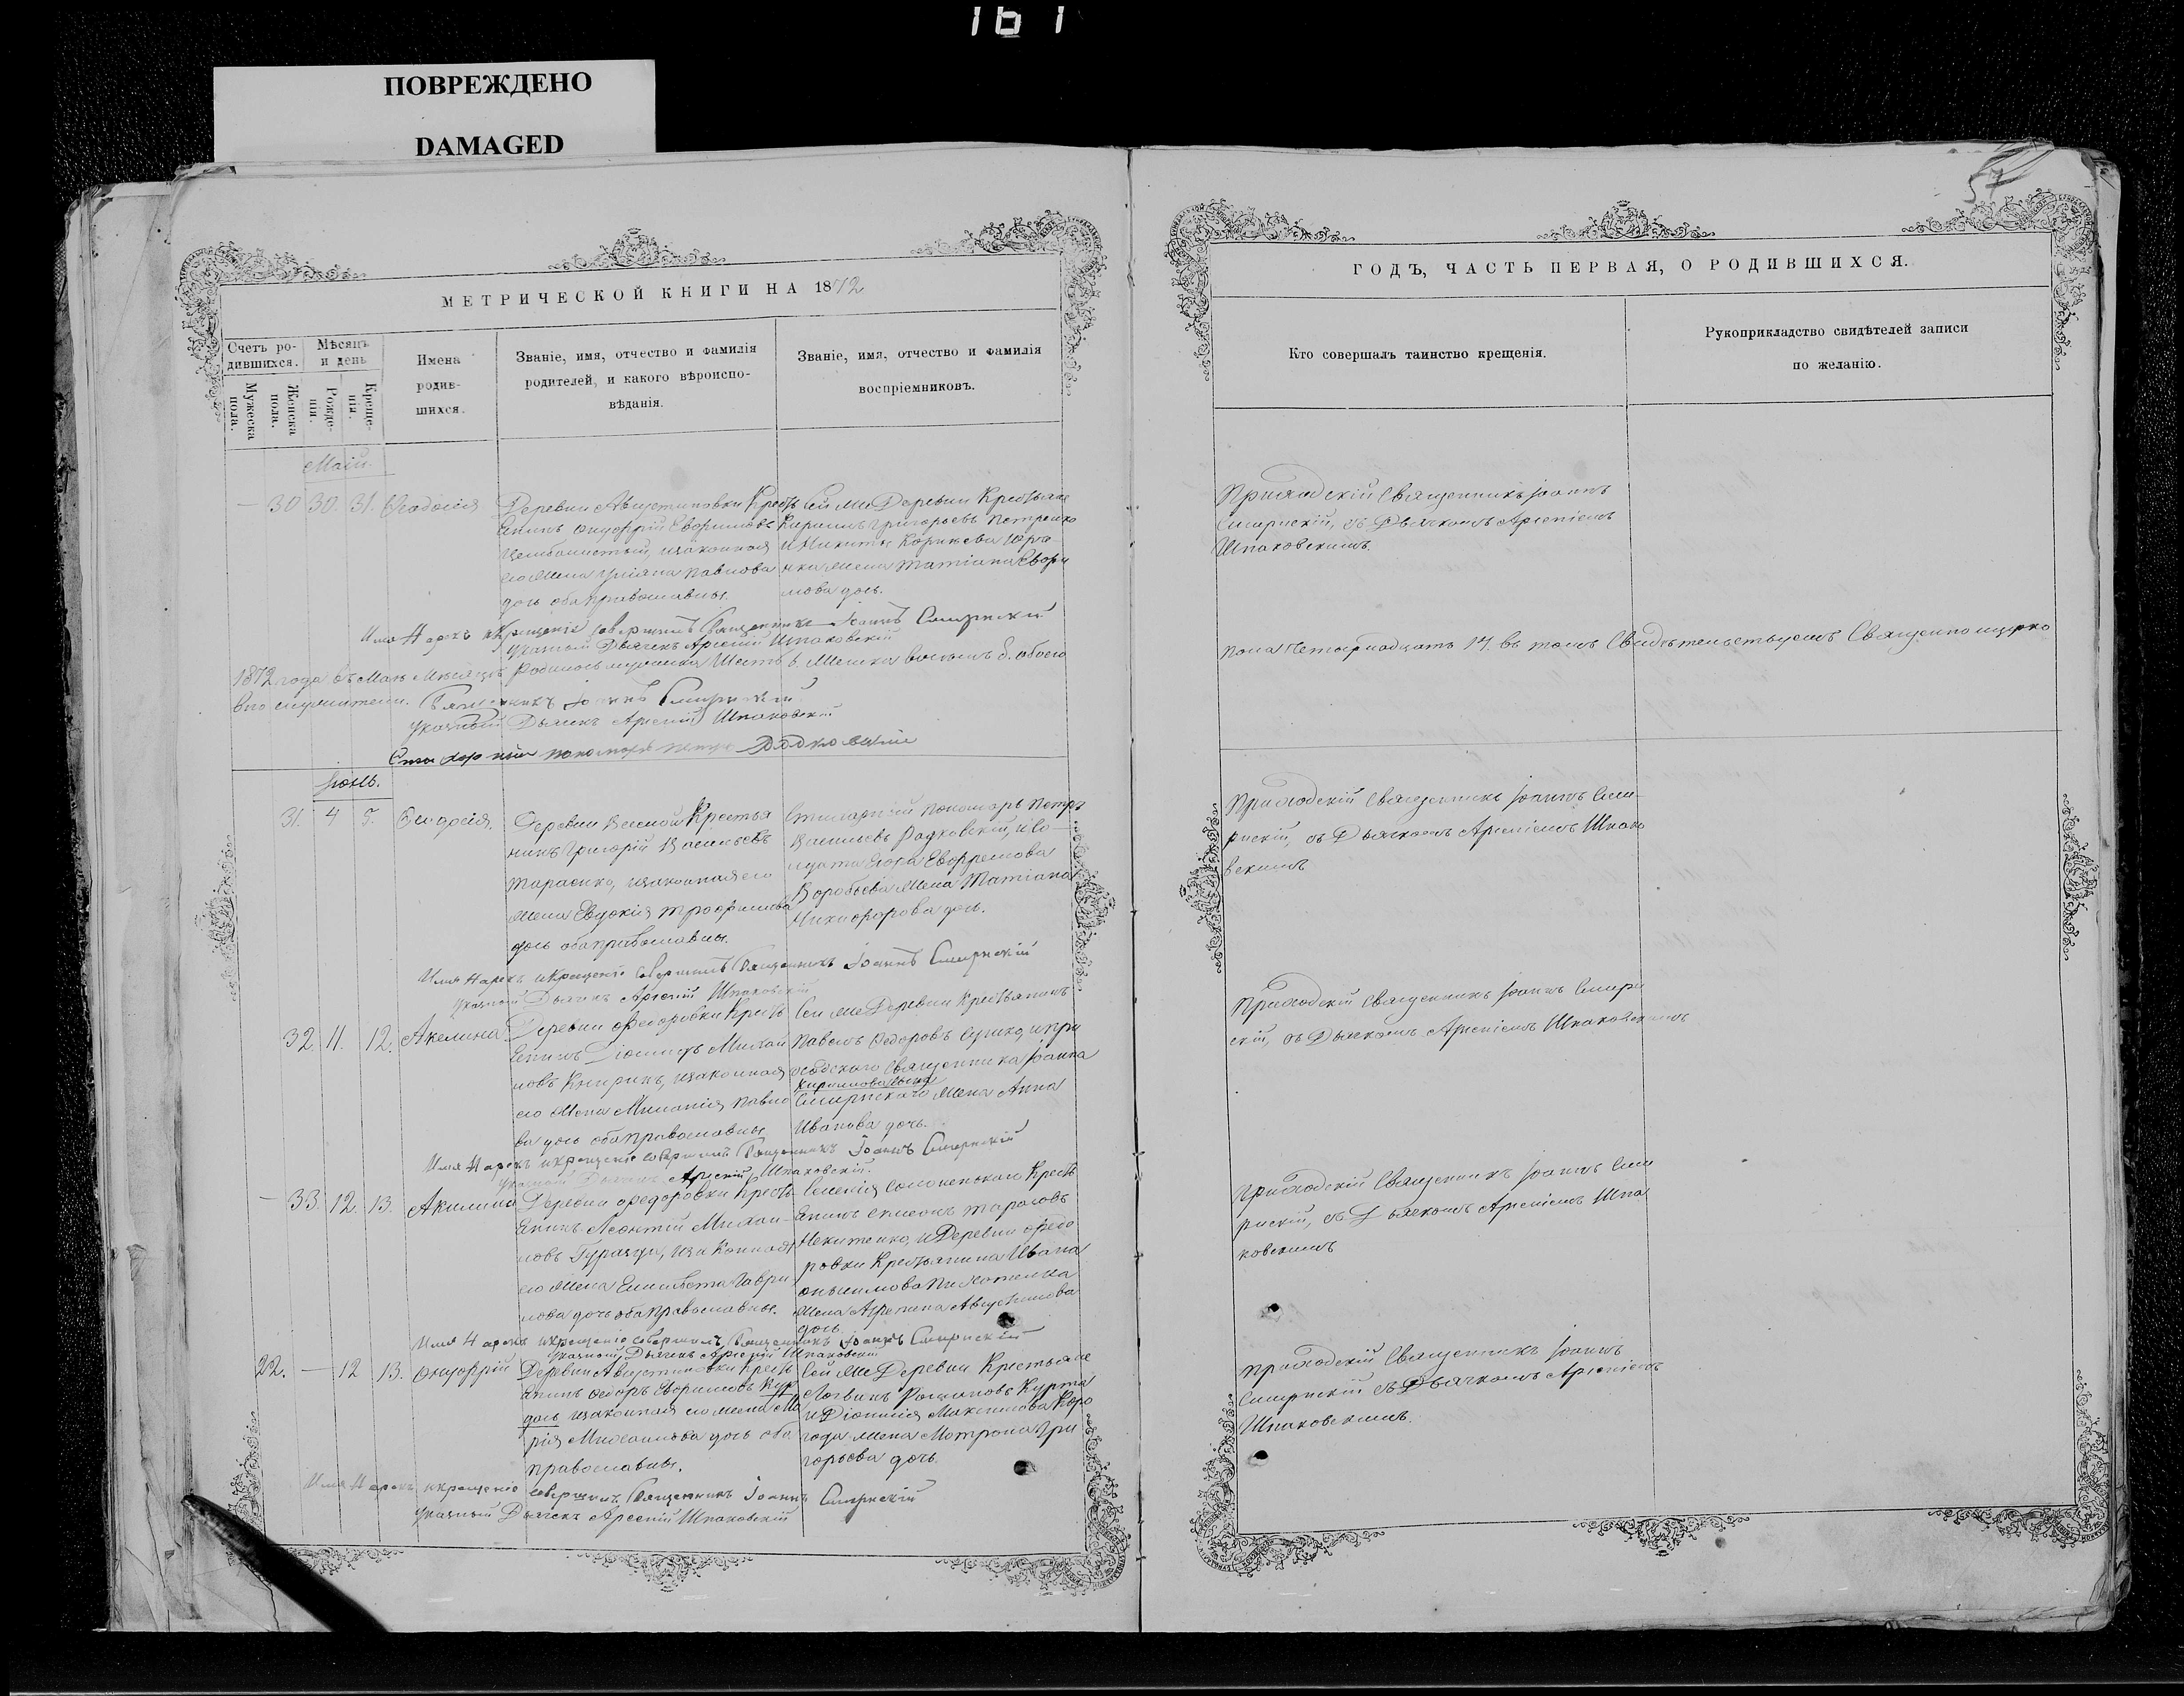 161
ПОВРЕЖДЕНО
DAMAGED
МЕТРИЧЕСКОЙ КНИГИ НА 1872
Счетъ ро-
дившихся.
Мѣсяцъ
и день
Мужеска
пола.
Женска
пола.
Рожде-
нія.
Креще-
нія.
Имена
родив-
шихся.
Званіе, имя, отчество и фамилія
родителей, и какого вѣроиспо-
вѣданія.
Званіе, имя, отчество и фамилія
воспріемниковъ.
Маій
— 30 30. 31. Феодосія
Деревни Августиновки Крестъ
янинъ Онуфрій Евфимовъ
изаконная
его жена Павлова
дочь оба православны.
Сей же Деревни Крестьяне
Кириллъ Григорьевъ Петренко
и Никиты
жена Татіана Евфи
мова дочь.
Имя Нарекъ и Крещеніе совершилъ Священникъ Іоаннъ Смирнскій
Указный Дьячекъ Арсеній Шпаковскій
1872 года въ Маѣ Мѣсяцѣ Родилось мужеска Шесть 6. Женска восемь 8. обоего
Священникъ Іоаннъ Смирнскій
Указный Дьячекъ Арсеній Шпаковскій
пономарь Петръ Радковскій
Іюнь.
31. 4 5. Феодосія.
Деревни Веселой Крестья
нинъ Григорій Васильевъ
Тараенко, изаконная его
жена Евдокія Трофимова
дочь оба православны.
пономарь Петръ
Васильевъ Радковскій, и со
лдата Егора Евфремова
Воробьева жена Татіана
Никифорова дочь.
Имя Нарекъ и Крещеніе совершилъ Священникъ Іоаннъ Смирнскій
Указный Дьячекъ Арсеній Шпаковскій
32. 11. 12. Акелина
Деревни Федоровки Крестъ
янинъ Діонисій Михай
ловъ изаконная
его жена Павло
ва дочь оба православны.
Сей же Деревни Крестьянинъ
Павелъ Федоровъ и при
ходскаго Священника Іоанна
Кириллова сына
Смирнскаго жена Анна
Иванова дочь.
Имя Нарекъ и Крещеніе совершилъ Священникъ Іоаннъ Смирнскій
Указный Дьячекъ Арсеній Шпаковскій.
— 33. 12. 13. Акилина
Деревни Федоровки Крестъ
янинъ Леонтій Михаи
ловъ изаконная
его жена Елисавета Гаври
лова дочь оба православны.
Селенія Крестъ
янинъ Тарасовъ
и Деревни Федо
ровки Крестьянина Ивана
жена Августинова
дочь.
Имя Нарекъ и Крещеніе совершилъ Священникъ Іоаннъ Смирнскій
Указный Дьячекъ Арсеній Шпаковскій
22. — 12 13. Онуфрій
Деревни Августиновки Крестъ
янинъ Федоръ Евфимовъ
изаконная его жена Ма
рія Михайлова дочь оба
православны.
Сей же Деревни Крестьяне
Логвинъ Романовъ Курта
и Діонисія Максимова Коро
года жена Матрона Гри
горьева дочь.
Имя Нарекъ и крещеніе совершилъ Священникъ Іоаннъ Смирнскій
Указный Дьячекъ Арсеній Шпаковскій
ГОДЪ, ЧАСТЬ ПЕРВАЯ, О РОДИВШИХСЯ.
Кто совершалъ таинство крещенія.
Рукоприкладство свидѣтелей записи
по желанію.
Приходскій Священникъ Іоаннъ
Смирнскій, съ Дьячкомъ Арсеніемъ
Шпаковскимъ.
пола четырнадцать 14. въ томъ Свидѣтельствуемъ Священно церко
Приходскій Священникъ Іоаннъ Сми
рнскій, съ Дьячкомъ Арсеніемъ Шпако
вскимъ
Приходскій Священникъ Іоаннъ Смирн
скій, съ Дьячкомъ Арсеніемъ Шпаковскимъ
Приходскій Священникъ Іоаннъ Сми
рнскій, съ Дьячкомъ Арсеніемъ Шпа
ковскимъ
Приходскій Священникъ Іоаннъ
Смирнскій съ Дьячкомъ Арсеніемъ
Шпаковскимъ.